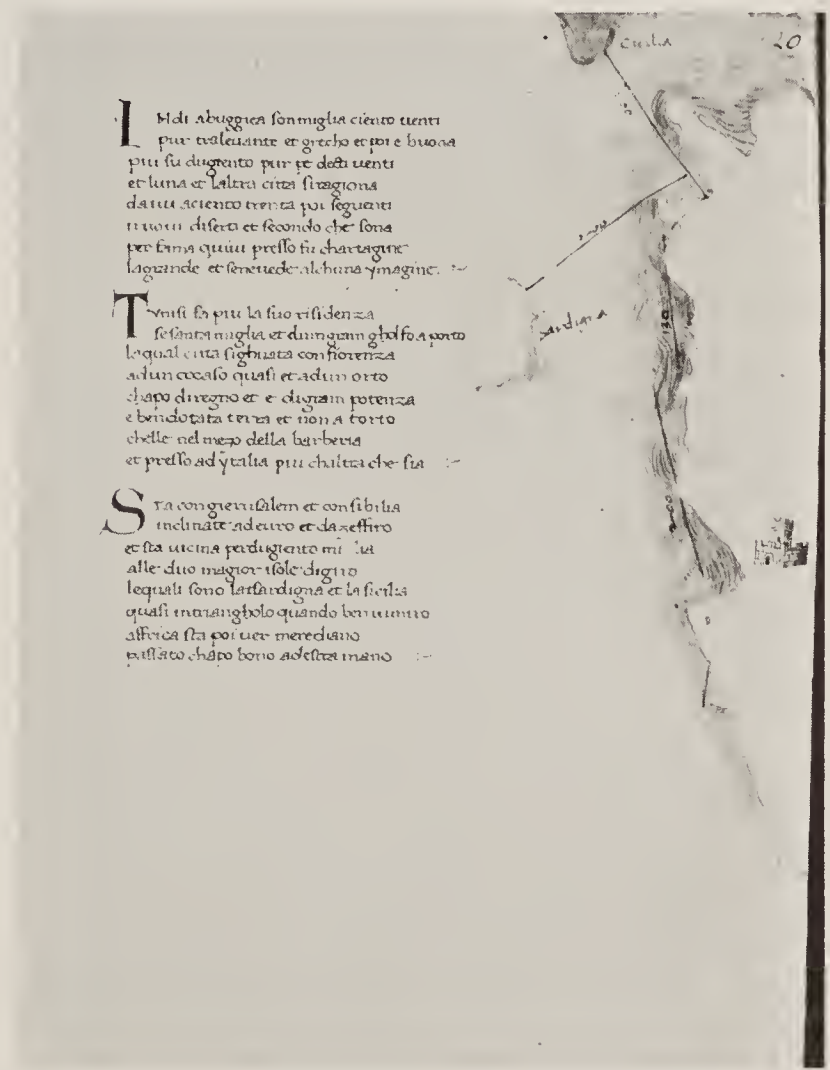 20
Cicilia
Indi abuggiea son miglia ciento uenti
pur tra leuante et grecho et poi e buona
piu su dugiento pur pe detti uenti
et luna et laltra citta si ragiona
da uu aciento trenta poi seguenti
truoui diserti et secondo che sona
per fama quiui presso fu chartagine
lagrande et seneuede alchuna ymagine
Tunisi fa piu la suo risidenza
sesanta miglia et di un gram gholfo a porto
laqual citta sighuata con fiorenza
ad un occaso quasi et ad un orto
chapo di regno et e di gram potenza
e ben dotata terra et non a torto
chelle nel mezo della barberia
et presso ad ytalia piu chaltra che sia
Sta con gierusalem et con sibilia
inclinate ad euro et da zeffiro
et sta uicina per dugiento mi lia
alle duo magior isole di giro
lequali sono la sardigna et la sicilia
quasi in triangholo quando ben
affrica sta poi uer meridiano
passato chapo bono a destra mano
Sardigna
130
200